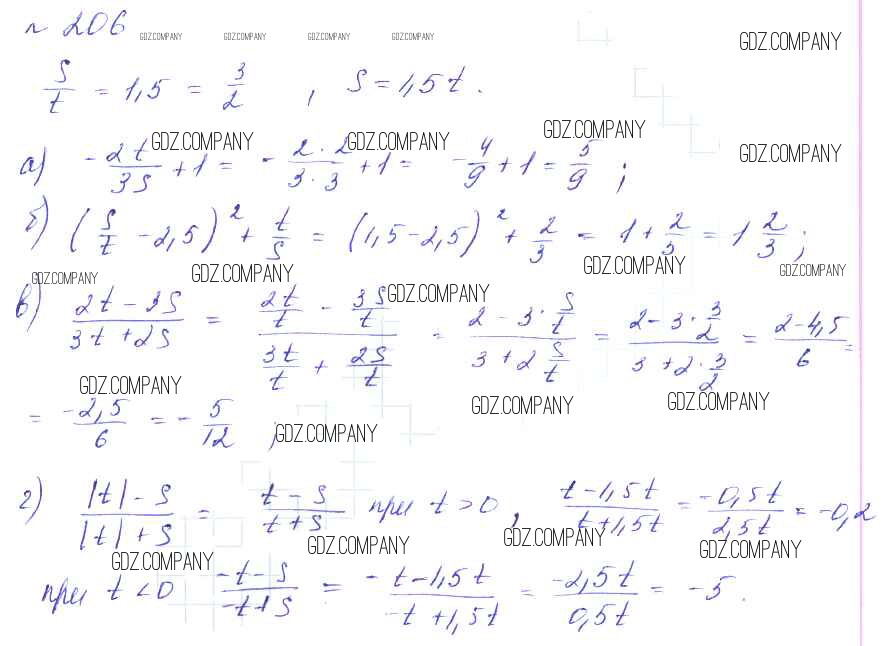 № 206
GDZ.COMPANY GDZ.COMPANY GDZ.COMPANY GDZ.COMPANY GDZ.COMPANY
S/t = 1,5 = 3/2 , S = 1,5t.
GDZ.COMPANY GDZ.COMPANY GDZ.COMPANY GDZ.COMPANY
а) -2t/3S + 1 = - (2·2)/(3·3) + 1 = - 4/9 + 1 = 5/9 ;
б) (S/t - 2,5)² + t/S = (1,5 - 2,5)² + 2/3 = 1 + 2/3 = 1 2/3 ;
GDZ.COMPANY GDZ.COMPANY GDZ.COMPANY GDZ.COMPANY GDZ.COMPANY
в) (2t - 3S)/(3t + 2S) = (2t/t - 3S/t)/(3t/t + 2S/t) = (2 - 3·S/t)/(3 + 2 S/t) = (2 - 3·3/2)/(3 + 2·3/2) = (2 - 4,5)/6 =
GDZ.COMPANY GDZ.COMPANY GDZ.COMPANY
= -2,5/6 = - 5/12 ; GDZ.COMPANY
г) (|t| - S)/(|t| + S) = (t - S)/(t + S) при t > 0 , (t - 1,5t)/(t + 1,5t) = -0,5t/2,5t = -0,2
GDZ.COMPANY GDZ.COMPANY GDZ.COMPANY GDZ.COMPANY
при t < 0 (-t - S)/(-t + S) = (-t - 1,5t)/(-t + 1,5t) = -2,5t/0,5t = -5.